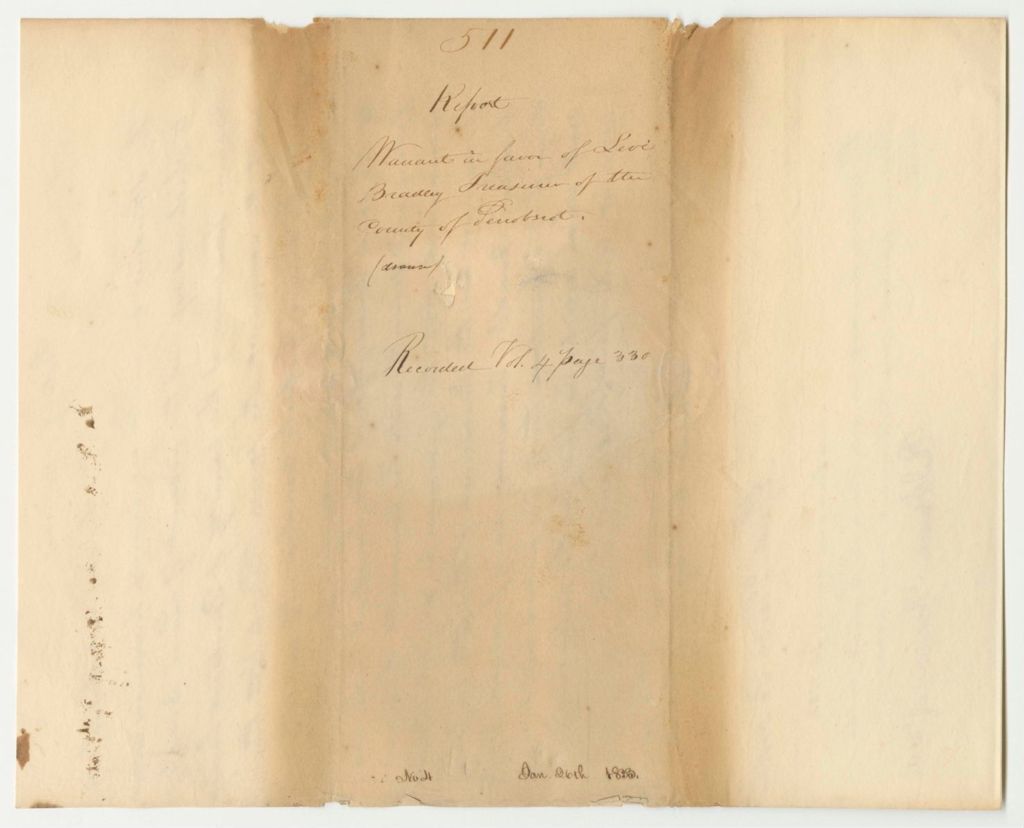 511
Report
Warrant in favor of Levi
Bradley Treasurer of the
County of Penobscot.
(drawn)
Recorded Vol. 4 page 330
No 4 Jan. 26th